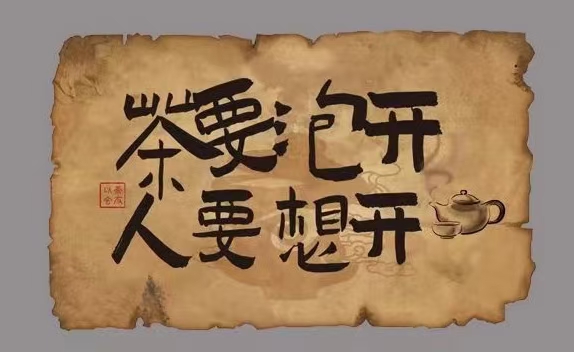 茶要泡开
人要想开